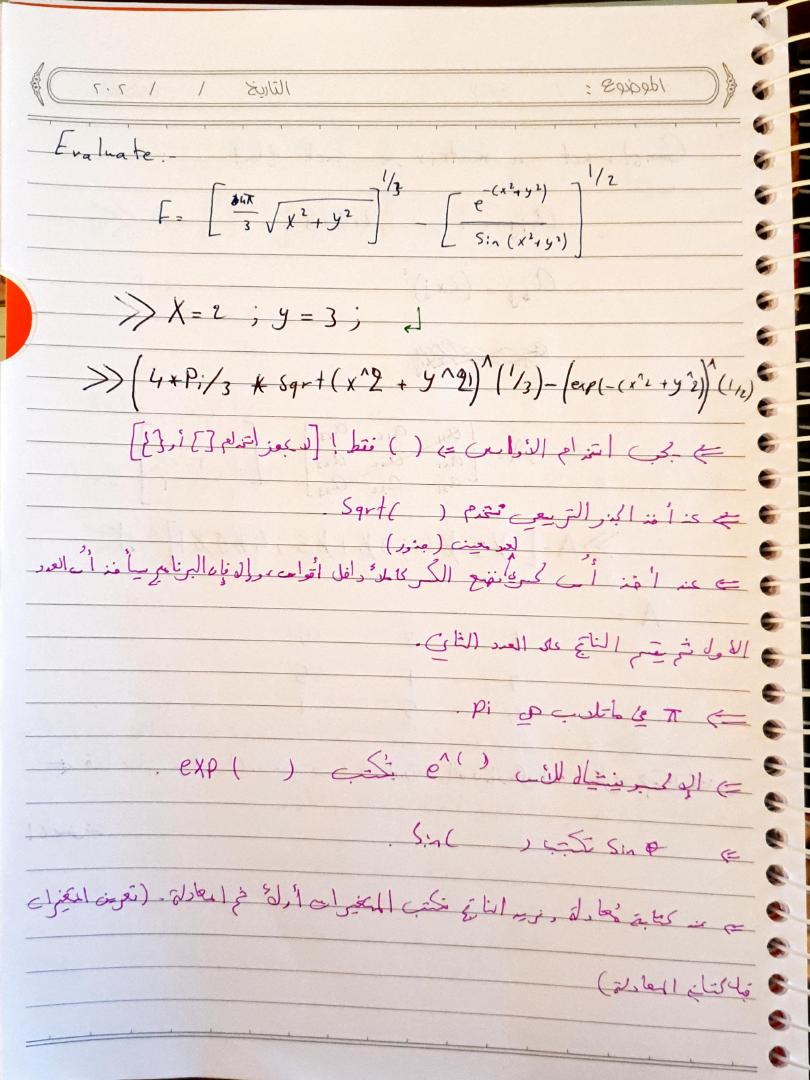 الموضوع : التاريخ / / ٢٠٢
Evaluate:-
F = [ 4π/3 √(x²+y²) ]^1/3 - [ e^-(x²+y²) / Sin(x²+y²) ]^1/2
>> X=2 ; y=3 ; ↲
>> (4*Pi/3 * Sqrt(x^2 + y^2))^(1/3)-(exp(-(x^2+y^2))^(1/2)
⇐ يجب استخدام الأقواس ⇐ ( ) فقط ! [لا يجوز استخدام [] أو {}]
⇐ عند أخذ الجذر التربيعي نستخدم Sqrt( ) .
لعدد معين (جذور)
⇐ عند أخذ أُس كسري نضع الكسر كاملاً داخل أقواس، وإلا فإن البرنامج سيأخذ أُس العدد
الأول ثم يقسم الناتج على العدد الثاني.
⇐ π في ماتلاب هي Pi .
⇐ الإكسبوننشيال للأس e^( ) تُكتب exp( ) .
⇐ Sin تكتب Sin( ) .
⇐ عند كتابة مُعادلة ونريد الناتج نكتب المتغيرات أولاً ثم المعادلة. (تعريف المتغيرات
قبل كتابة المعادلة)